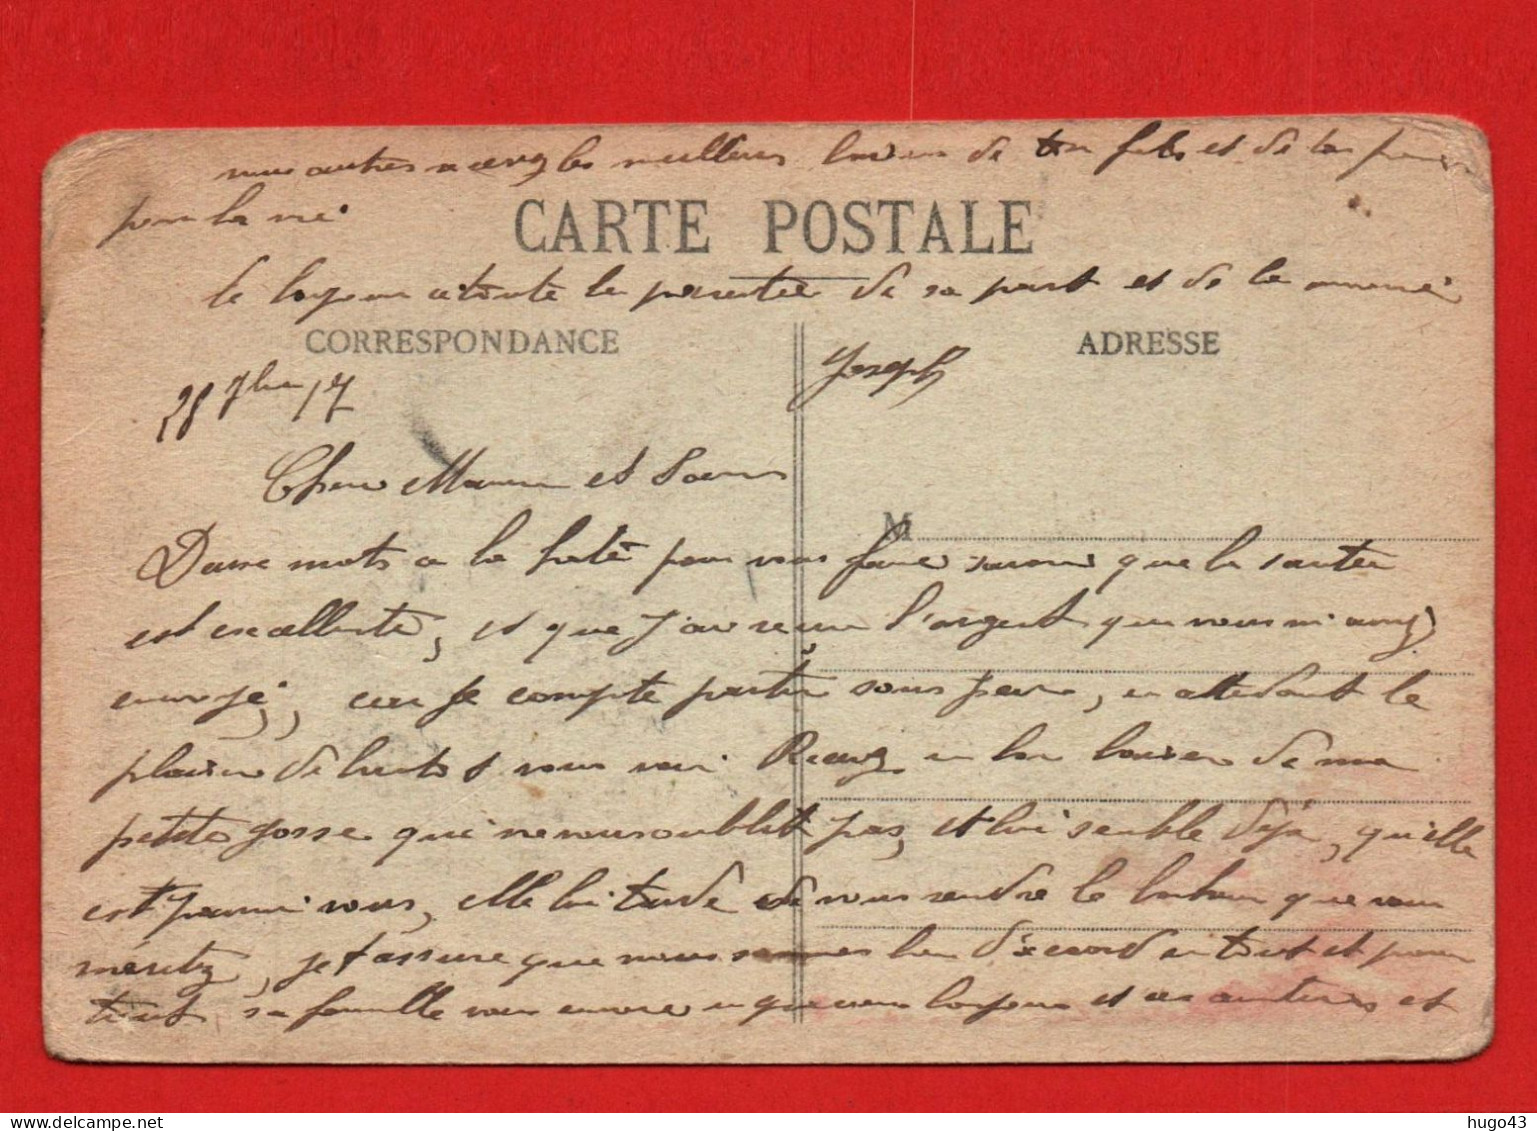 nous autres recevez les meilleurs baisers de ton fils et de ta
pour la vie
le bonjour a toute la parentée de sa part et de la
CARTE POSTALE
CORRESPONDANCE
ADRESSE
Joseph
28 7bre 17
Chere Maman et Soeurs
M
Deux mots a la hate pour vous faire savoir que la santée
est excellente, et que j'ai reçu l'argent que vous m'avez
envoyé, car je compte partir sous peu, en attendant le
plaisir de bientot vous voir Recevez un bon baiser de ma
petite gosse qui ne vous oublit pas, et lui semble déja, qu'elle
est parmi vous, elle lui tarde de vous rendre le bonheur que vous
méritez, je t'assure que nous sommes bien d'accord en tout et pour
tout sa famille vous envoie un bonjour et et